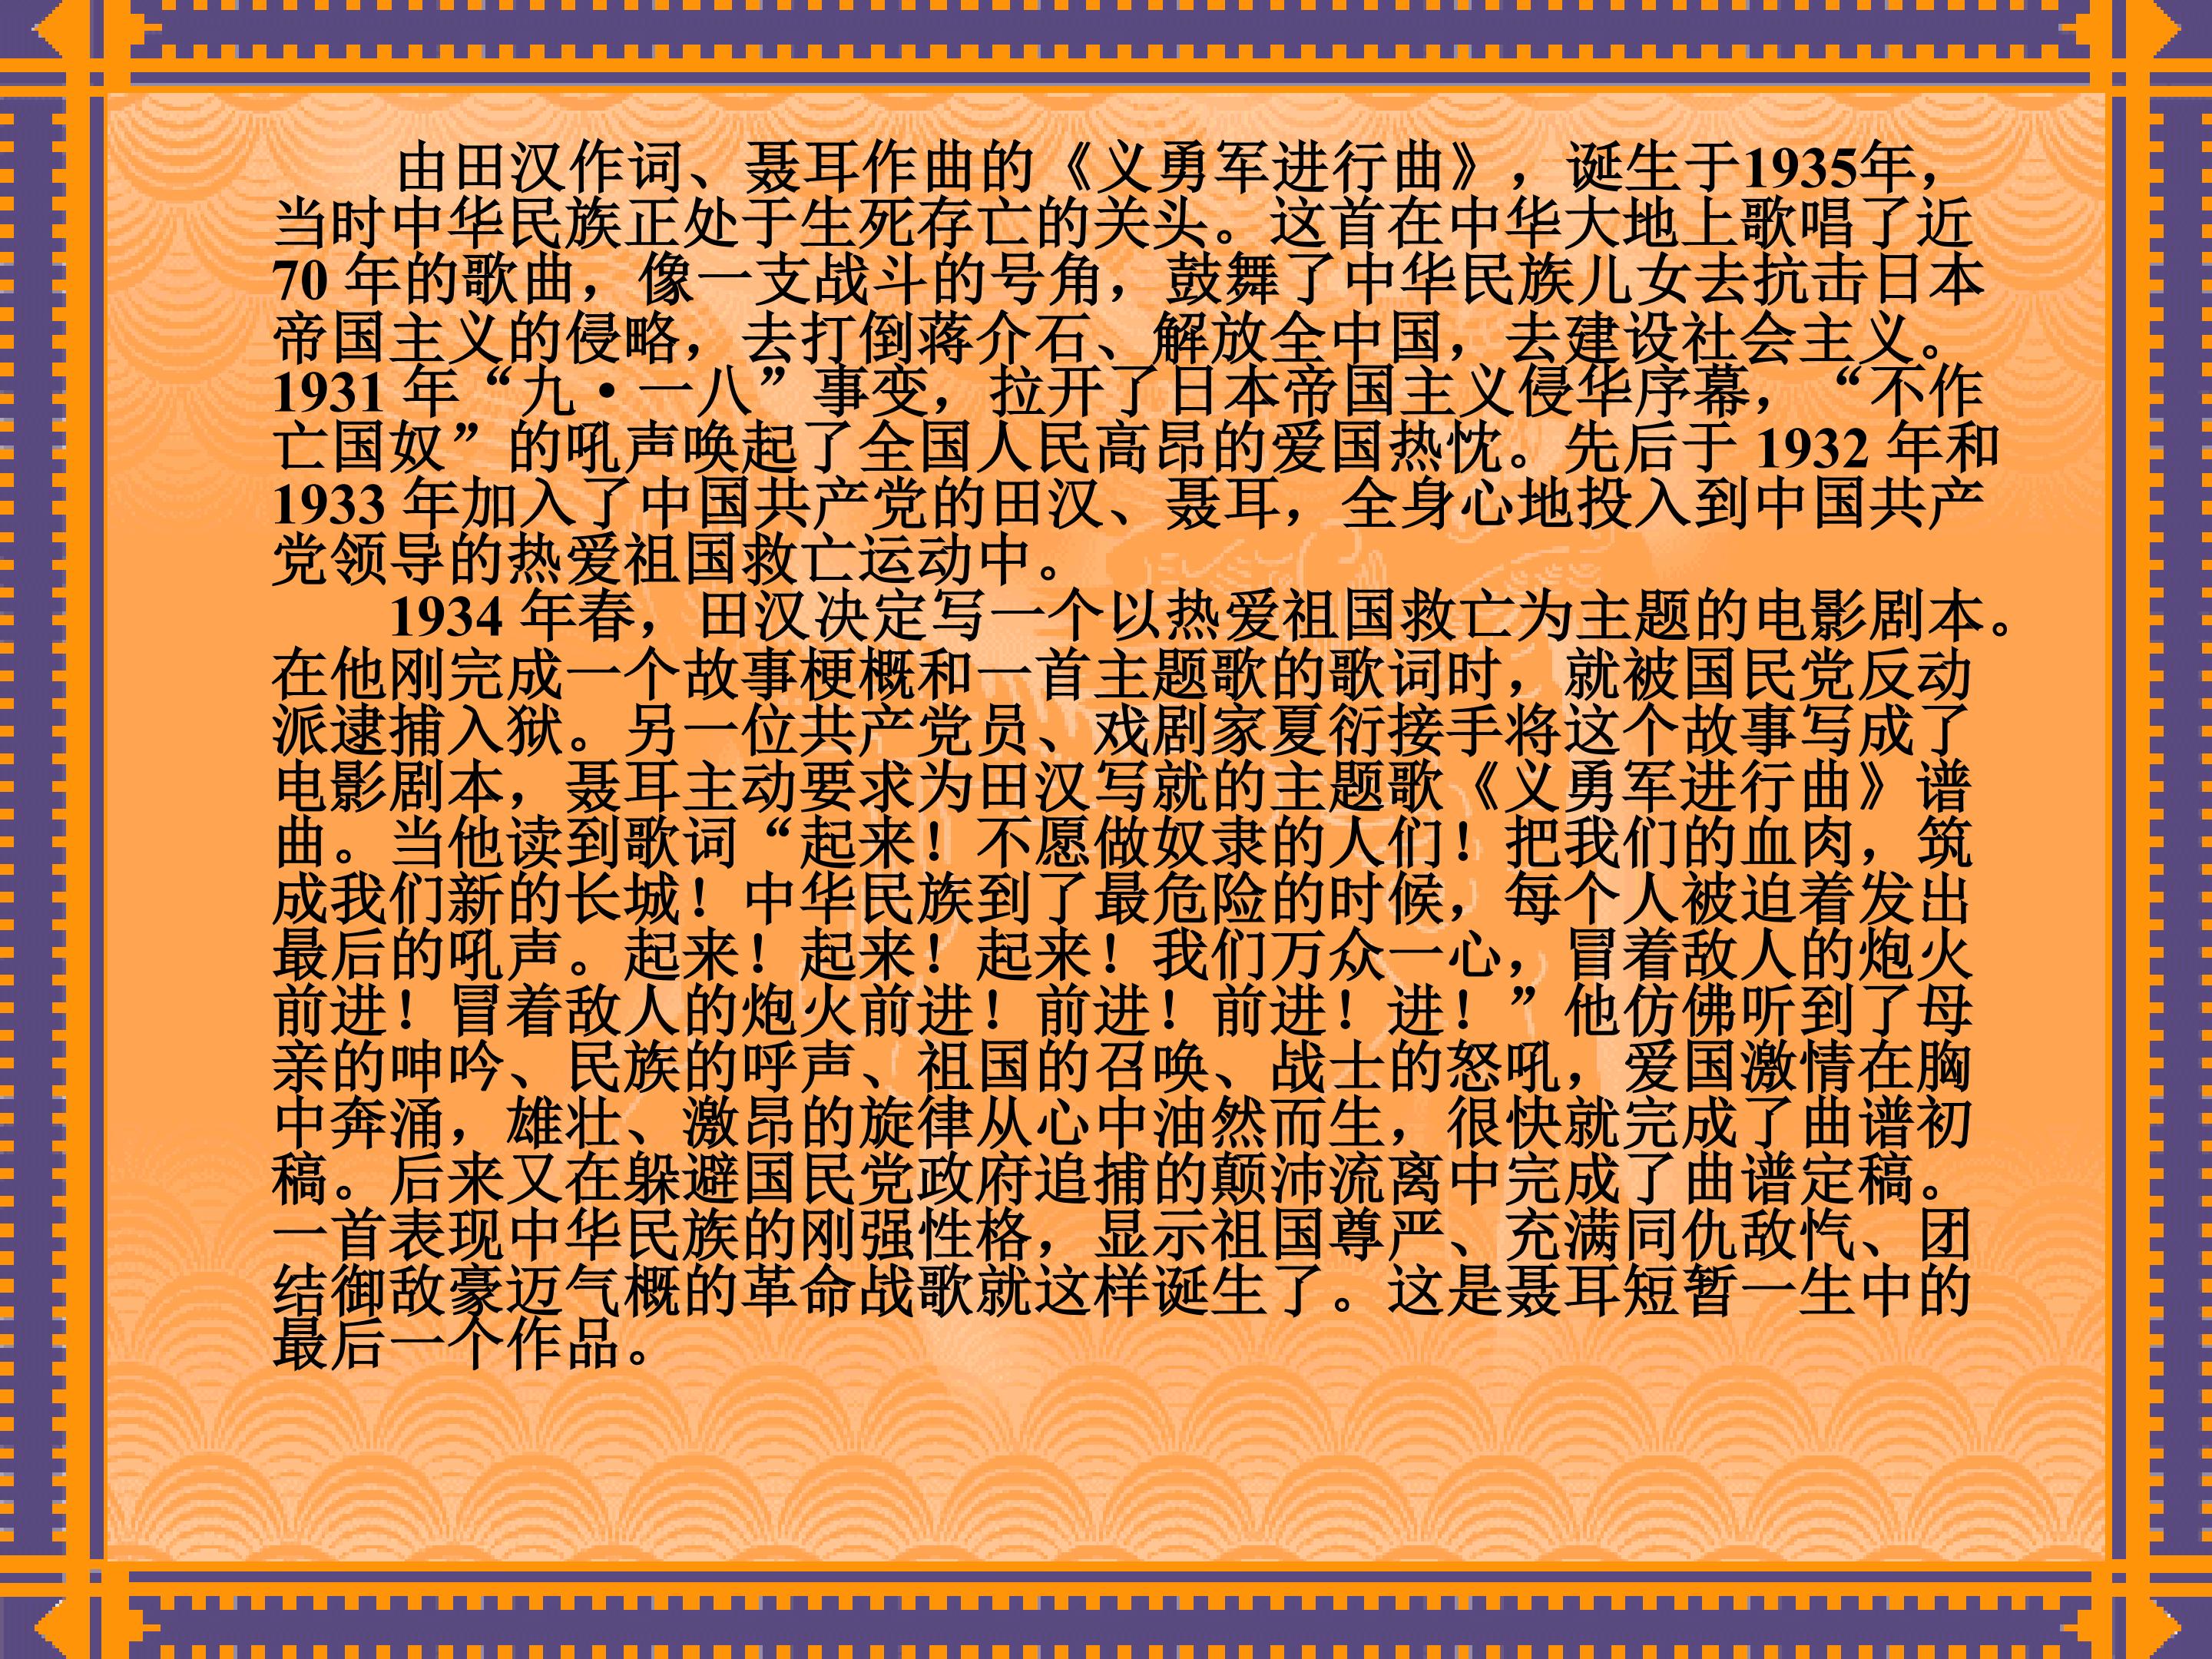 由田汉作词、聂耳作曲的《义勇军进行曲》，诞生于1935年，
当时中华民族正处于生死存亡的关头。这首在中华大地上歌唱了近
70 年的歌曲，像一支战斗的号角，鼓舞了中华民族儿女去抗击日本
帝国主义的侵略，去打倒蒋介石、解放全中国，去建设社会主义。
1931 年“九·一八”事变，拉开了日本帝国主义侵华序幕，“不作
亡国奴”的吼声唤起了全国人民高昂的爱国热忱。先后于 1932 年和
1933 年加入了中国共产党的田汉、聂耳，全身心地投入到中国共产
党领导的热爱祖国救亡运动中。
1934 年春，田汉决定写一个以热爱祖国救亡为主题的电影剧本。
在他刚完成一个故事梗概和一首主题歌的歌词时，就被国民党反动
派逮捕入狱。另一位共产党员、戏剧家夏衍接手将这个故事写成了
电影剧本，聂耳主动要求为田汉写就的主题歌《义勇军进行曲》谱
曲。当他读到歌词“起来！不愿做奴隶的人们！把我们的血肉，筑
成我们新的长城！中华民族到了最危险的时候，每个人被迫着发出
最后的吼声。起来！起来！起来！我们万众一心，冒着敌人的炮火
前进！冒着敌人的炮火前进！前进！前进！进！”他仿佛听到了母
亲的呻吟、民族的呼声、祖国的召唤、战士的怒吼，爱国激情在胸
中奔涌，雄壮、激昂的旋律从心中油然而生，很快就完成了曲谱初
稿。后来又在躲避国民党政府追捕的颠沛流离中完成了曲谱定稿。
一首表现中华民族的刚强性格，显示祖国尊严、充满同仇敌忾、团
结御敌豪迈气概的革命战歌就这样诞生了。这是聂耳短暂一生中的
最后一个作品。